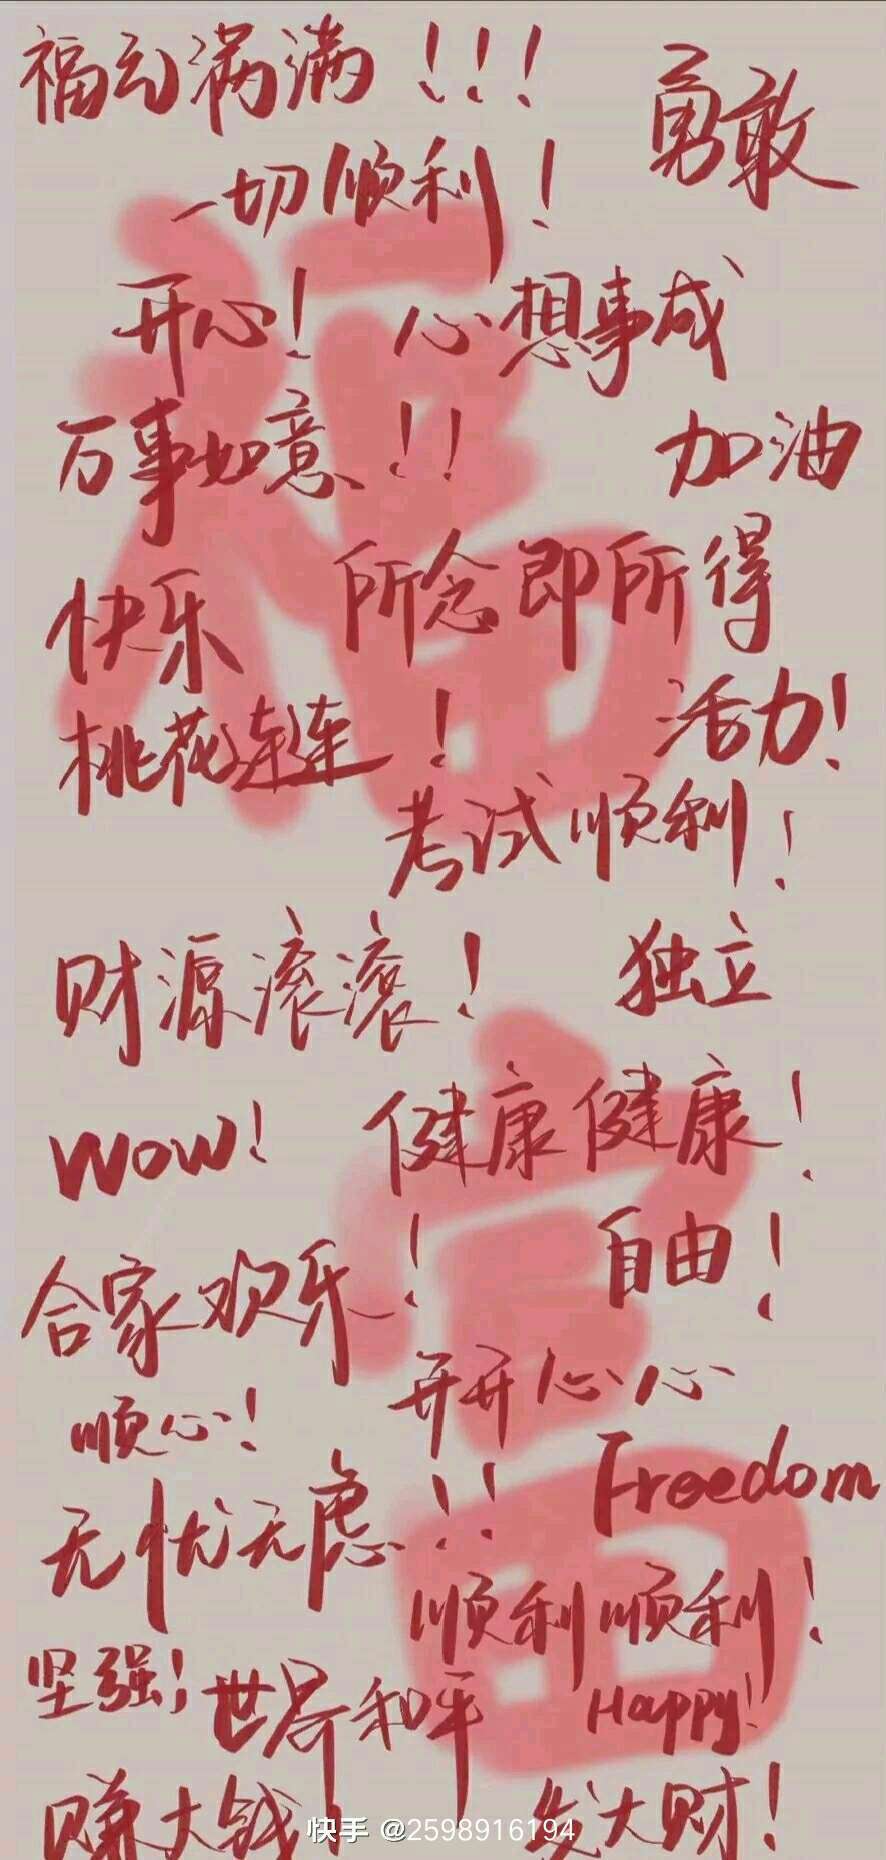 福云满满!!!
勇敢
一切顺利!
开心!
心想事成
万事如意!!
加油
所念即所得
快乐
活力!
桃花连连!
考试顺利!
财源滚滚!
独立
WOW!
健康健康!
自由!
合家欢乐!
开开心心
顺心!
Freedom
无忧无虑!!
顺利顺利!
坚强!
世界和平
Happy!
赚大钱!
发大财!
快手 @2598916194
福
富